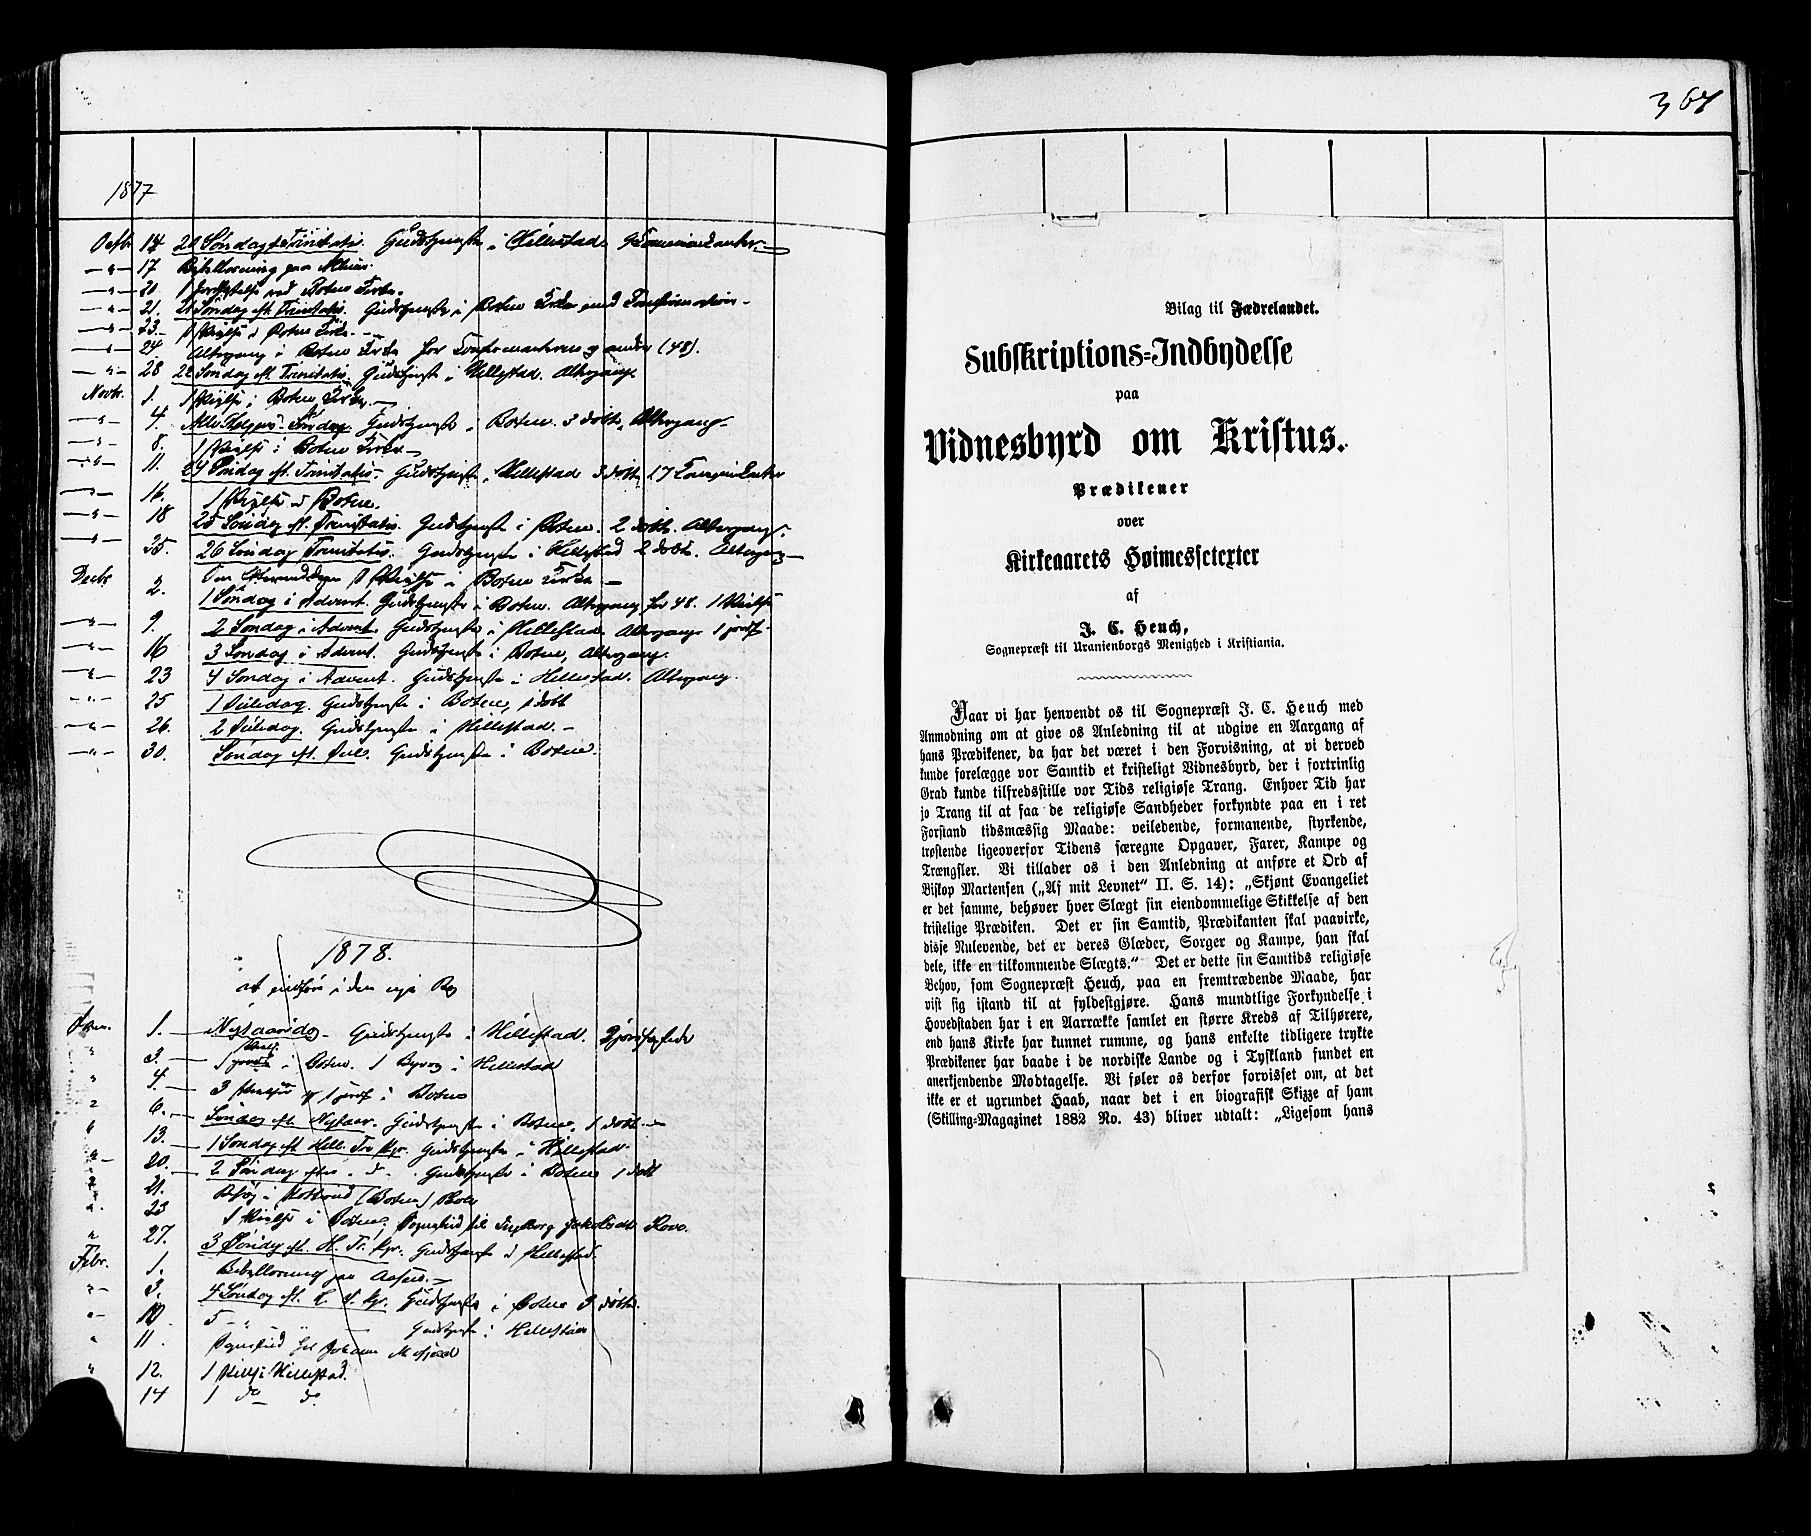 1877
Octbr 14 20 Søndag e Trinitatis. Gudstjeneste i Hillestad 9 Communicanter.
—"— 17 Bibellæsning paa
—"— 20. 1 Jordfæstelse ved Botne Kirke.
—"— 21. 21 Søndag eft. Trinitatis. Gudstjeneste i Botne Kirke med Confirmation
—"— 23. 1 Vielse i Botne Kirke.
—"— 24. Altergang i Botne Kirke for Confirmanterne og andre (48).
—"— 28 22 Søndag eft. Trinitatis. Gudstjeneste i Hillestad. Altergang
Novbr. 1. 1 Vielse i Botne Kirke.
—"— 4. Alle Helgens Søndag. Gudstjeneste i Botne. 3 døbte, Altergang
—"— 8. 1 Vielse i Botne Kirke
—"— 11. 24 Søndag eft. Trinitatis. Gudstjeneste i Hillestad 3 døbte 17 Communicanter
—"— 16. 1 Vielse i Botne.
—"— 18 25 Søndag eft. Trinitatis. Gudstjeneste i Botne. 2 døbte. Altergang.
—"— 25. 26 Søndag Trinitatis. Gudstjeneste i Hillestad 2 døbte. Altergang
Om Eftermiddagen 1 Vielse i Botne Kirke
Decbr 2. 1 Søndag i Advent. Gudstjeneste i Botne. Altergang for 48. 1 Vielse
—"— 9. 2 Søndag i Advent. Gudstjeneste i Hillestad. Altergang 1 jordf.
—"— 16 3 Søndag i Advent. Gudstjeneste i Botne, Altergang.
—"— 23 4 Søndag i Advent. Gudstjeneste i Hillestad. Altergang.
—"— 25 1 Juledag. Gudstjeneste i Botne, 1 døbt
—"— 26. 2 Juledag. Gudstjeneste i Hillestad.
—"— 30. Søndag eft. Jul. Gudstjeneste i Botne.
1878.
at indføre i den nye Bog
Jan. 1. Nytaarsdag. Gudstjeneste i Hillestad. 2 jordfæstede
" 3. 1 i Botne. 1 i Hillestad
" 4. 3 Vielser og 1 jordf i Botne
" 6. Søndag eft. Nytaar. Gudstjeneste i Botne, 1 døbt
" 13. 1 Søndag eft Hell. Tre Kgr. Gudstjeneste i Hillestad.
" 20. 2 Søndag efter d. Gudstjeneste i Botne 1 døbt
" 21. Besøg i (Botne)
" 23 1 Vielse i Botne, Sognebud til Rove.
" 27. 3 Søndag eft. H. Tr. Kgr. Gudstjeneste i Hillestad.
Febr. 1. Bibellæsning paa Aasen.
" 3. 4 Søndag eft. H. T. Kgr. Gudstjeneste i Botne 3 døbte.
" 10 5 — " — Gudstjeneste i Hillestad
" 11. Sognebud til Johanne
" 12. 1 Vielse i Hillestad.
14 1 do do
367
Bilag til Fædrelandet.
Subskriptions-Indbydelse
paa
Vidnesbyrd om Kristus.
Prædikener
over
Kirkeaarets Høimessetexter
af
J. C. Heuch,
Sognepræst til Uranienborgs Menighed i Kristiania.
Naar vi har henvendt os til Sognepræst J. C. Heuch med
Anmodning om at give os Anledning til at udgive en Aargang af
hans Prædikener, da har det været i den Forvisning, at vi derved
kunde forelægge vor Samtid et kristeligt Vidnesbyrd, der i fortrinlig
Grad kunde tilfredsstille vor Tids religiøse Trang. Enhver Tid har
jo Trang til at faa de religiøse Sandheder forkyndte paa en i ret
Forstand tidsmæssig Maade: veiledende, formanende, styrkende,
trøstende ligeoverfor Tidens særegne Opgaver, Farer, Kampe og
Trængsler. Vi tillader os i den Anledning at anføre et Ord af
Biskop Martensen („Af mit Levnet“ II. S. 14): „Skjønt Evangeliet
er det samme, behøver hver Slægt sin eiendommelige Skikkelse af den
kristelige Prædiken. Det er sin Samtid, Prædikanten skal paavirke,
disse Nulevende, det er deres Glæder, Sorger og Kampe, han skal
dele, ikke en tilkommende Slægts.“ Det er dette sin Samtids religiøse
Behov, som Sognepræst Heuch, paa en fremtrædende Maade, har
vist sig istand til at fyldestgjøre. Hans mundtlige Forkyndelse i
Hovedstaden har i en Aarrække samlet en større Kreds af Tilhørere,
end hans Kirke har kunnet rumme, og hans enkelte tidligere trykte
Prædikener har baade i de nordiske Lande og i Tyskland fundet en
anerkjendende Modtagelse. Vi føler os derfor forvisset om, at det
ikke er et ugrundet Haab, naar det i en biografisk Skizze af ham
(Skilling-Magazinet 1882 No. 43) bliver udtalt: „Ligesom hans